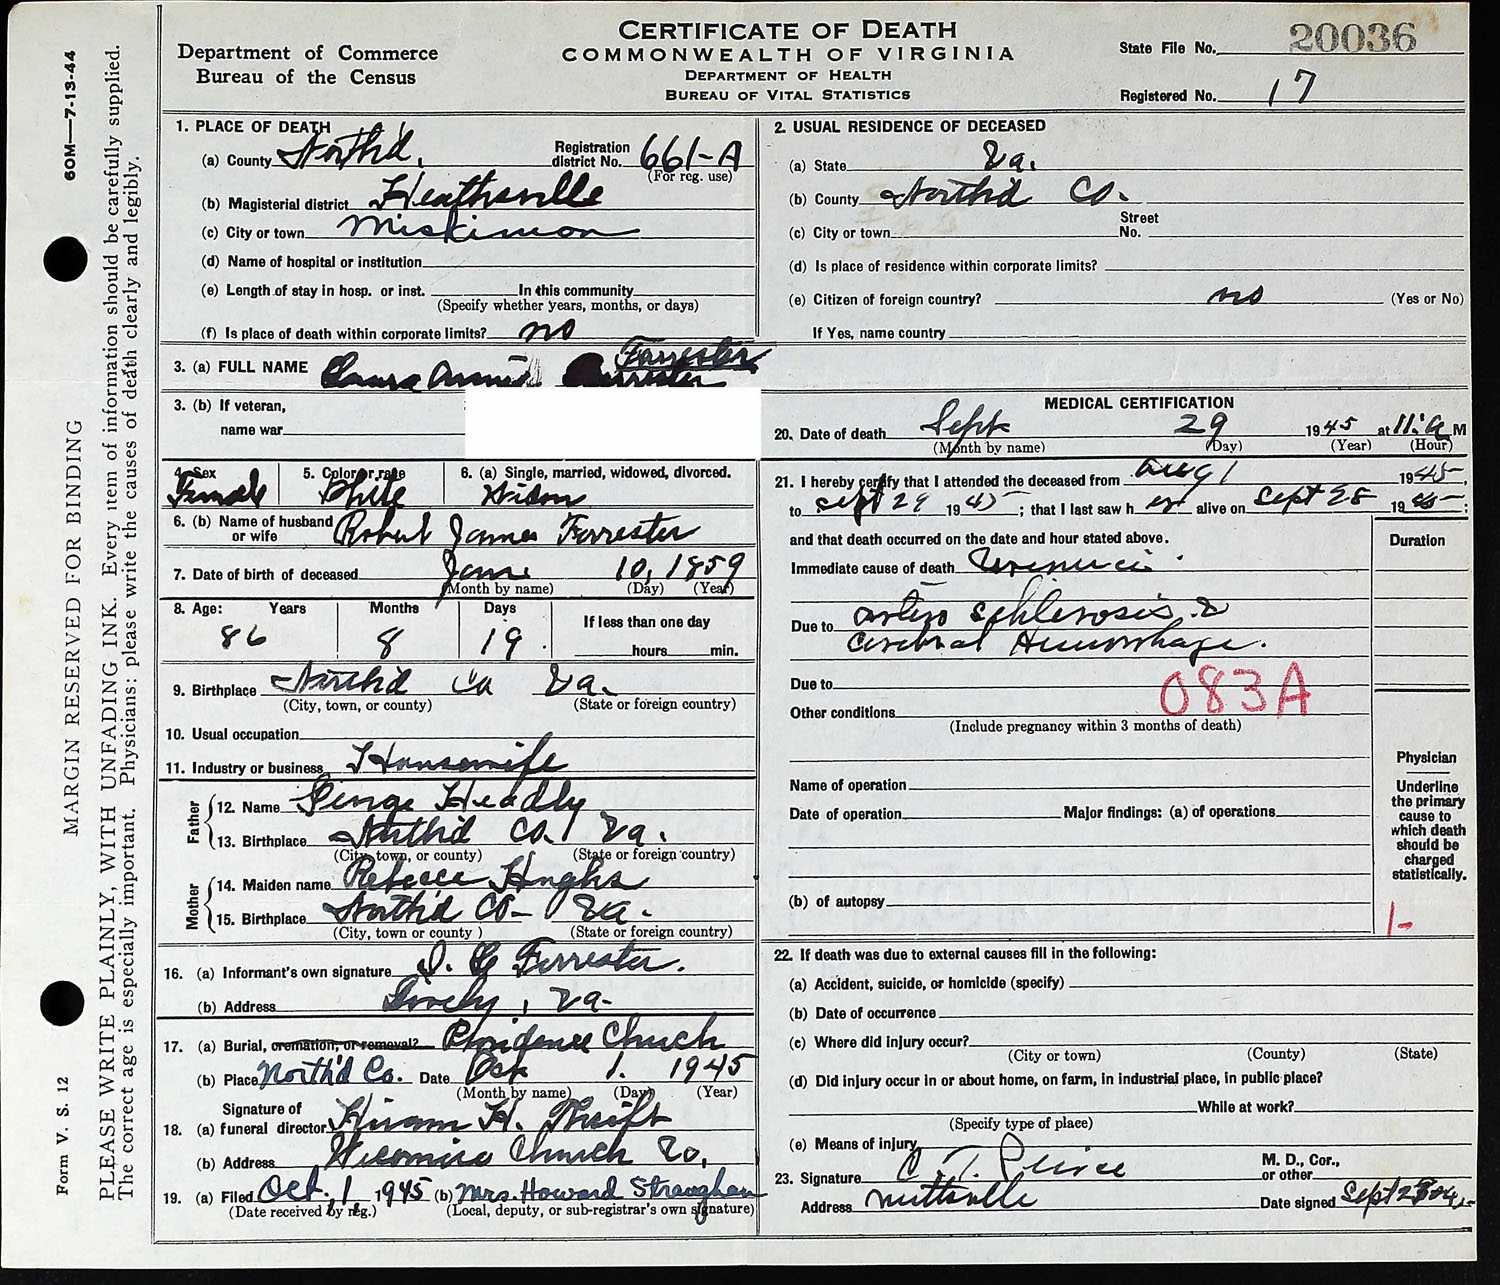 CERTIFICATE OF DEATH
COMMONWEALTH OF VIRGINIA
DEPARTMENT OF HEALTH
BUREAU OF VITAL STATISTICS
Department of Commerce
Bureau of the Census
State File No. 20036
Registered No. 17
60M—7-13-44
MARGIN RESERVED FOR BINDING
PLEASE WRITE PLAINLY, WITH UNFADING INK. Every item of information should be carefully supplied.
The correct age is especially important. Physicians: please write the causes of death clearly and legibly.
Form V. S. 12
1. PLACE OF DEATH
(a) County North'd. Registration district No. 661-A
(For reg. use)
(b) Magisterial district Heathsville
(c) City or town Miskimon
(d) Name of hospital or institution
(e) Length of stay in hosp. or inst. In this community
(Specify whether years, months, or days)
(f) Is place of death within corporate limits? no
2. USUAL RESIDENCE OF DECEASED
(a) State Va.
(b) County North'd Co.
(c) City or town Street No.
(d) Is place of residence within corporate limits?
(e) Citizen of foreign country? no (Yes or No)
If Yes, name country
3. (a) FULL NAME Laura Annie Forrester
3. (b) If veteran,
name war
4. Sex Female
5. Color or race White
6. (a) Single, married, widowed, divorced. Widow
6. (b) Name of husband or wife Robert James Forrester
7. Date of birth of deceased Jan 10, 1859
(Month by name) (Day) (Year)
8. Age: Years Months Days If less than one day
86 8 19 hours min.
9. Birthplace North'd Co Va.
(City, town, or county) (State or foreign country)
10. Usual occupation
11. Industry or business Housewife
Father
12. Name George Headly
13. Birthplace North'd Co. Va.
(City, town, or county) (State or foreign country)
Mother
14. Maiden name Rebecca Hughs
15. Birthplace North'd Co- Va.
(City, town or county ) (State or foreign country)
16. (a) Informant's own signature Forrester.
(b) Address Lively, Va-
17. (a) Burial, cremation, or removal? Providence Church
(b) Place North'd Co. Date Oct 1. 1945
(Month by name) (Day) (Year)
18. Signature of
(a) funeral director Hiram H. Thrift
(b) Address Wicomico Church Va.
19. (a) Filed Oct. 1, 1945 (b) Mrs. Howard Straughan
(Date received by reg.) (Local, deputy, or sub-registrar's own signature)
MEDICAL CERTIFICATION
20. Date of death Sept 29 1945 at 11:a M
(Month by name) (Day) (Year) (Hour)
21. I hereby certify that I attended the deceased from Aug 1 1945,
to Sept 29 1945 ; that I last saw h er alive on Sept 28 1945 ;
and that death occurred on the date and hour stated above.
Duration
Immediate cause of death Uremia
Due to arterio schlerosis &
cerebral Hemorrhage.
Due to
083A
Other conditions
(Include pregnancy within 3 months of death)
Name of operation
Date of operation Major findings: (a) of operations
(b) of autopsy
Physician
Underline the primary cause to which death should be charged statistically.
1-
22. If death was due to external causes fill in the following:
(a) Accident, suicide, or homicide (specify)
(b) Date of occurrence
(c) Where did injury occur?
(City or town) (County) (State)
(d) Did injury occur in or about home, on farm, in industrial place, in public place?
While at work?
(Specify type of place)
(e) Means of injury
23. Signature C. T. Peirce M. D., Cor., or other
Address Nuttsville Date signed Sept